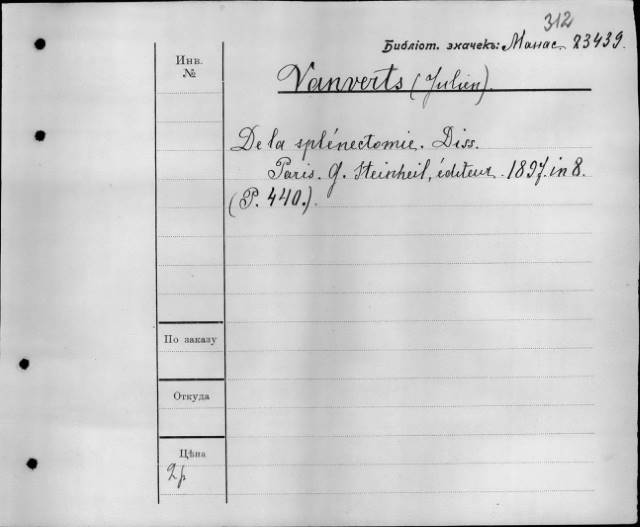 312
Библіот. значекъ: Манас. 23439.
Инв.
№
Vanverts (Julien).
De la splénectomie. Diss.
Paris. G. Steinheil, éditeur. 1897. in 8.
(P. 440.).
По заказу
Откуда
Цѣна
2 р